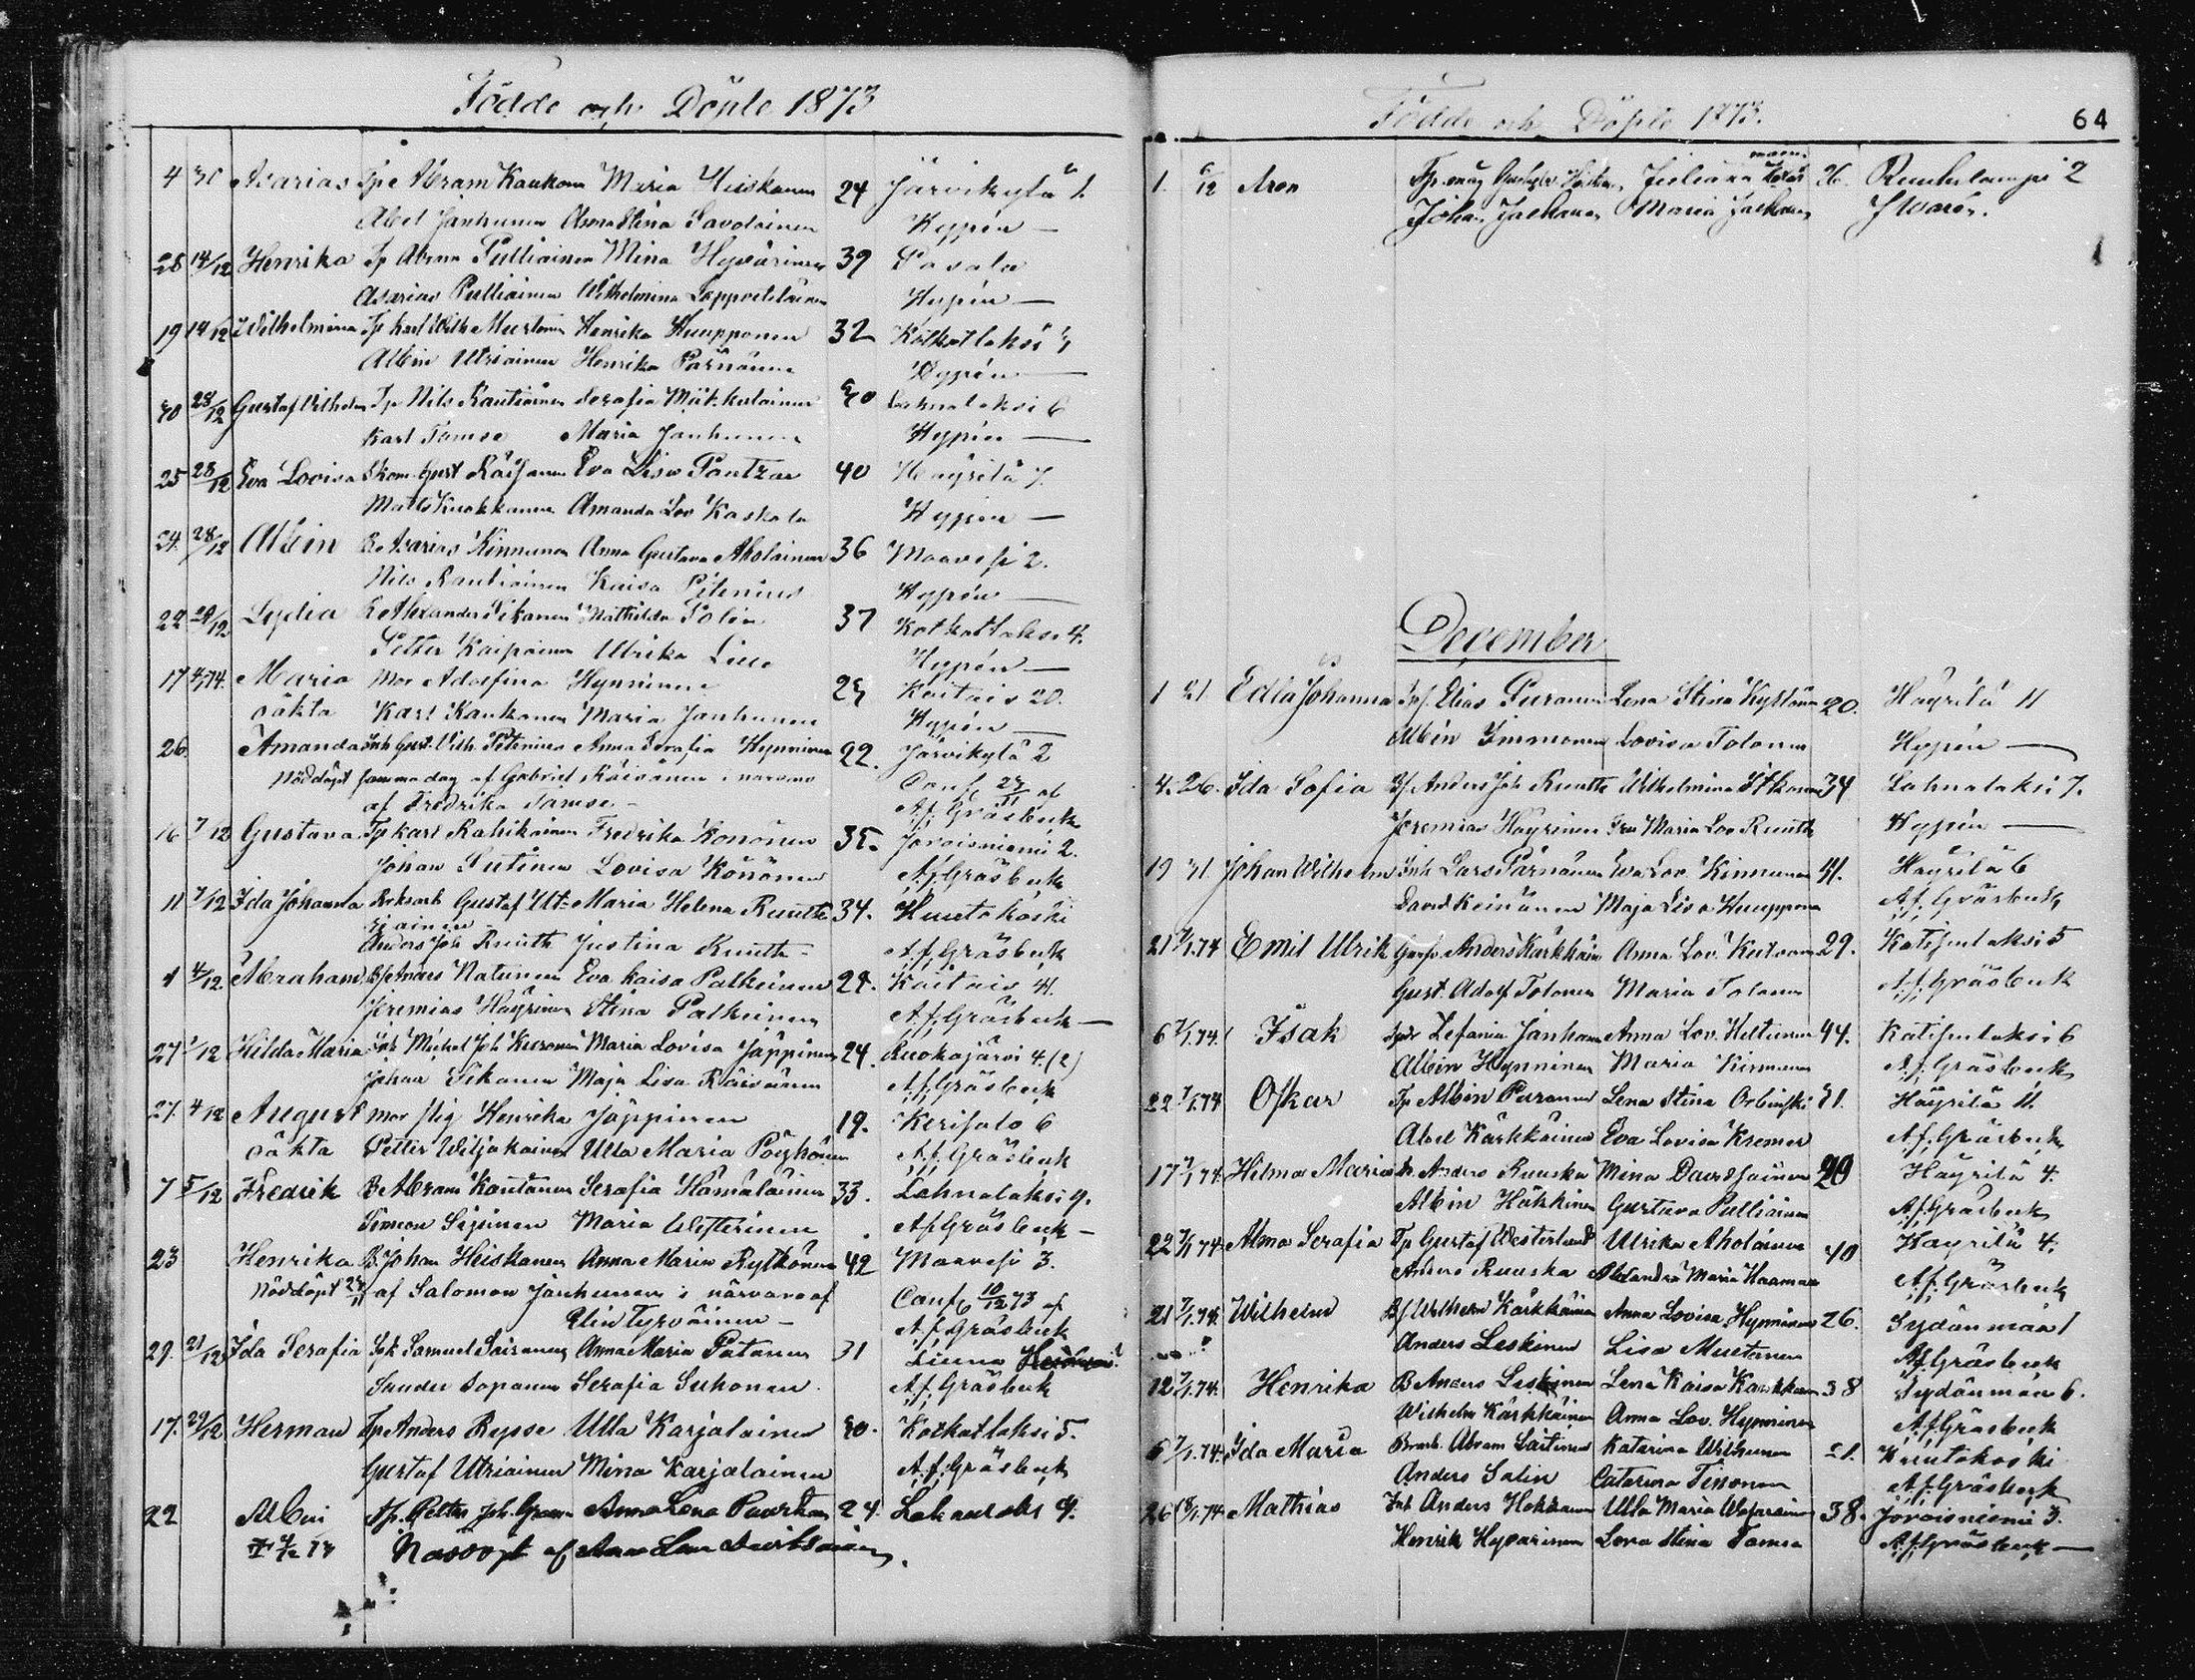 Födde och Döpte 1873
4 30 Asarias Tp Abram Kaukonen Maria Hiiskanen 24 Järvikylä 1.
Abel Janhunen Anna Stina Savolainen Hypén —
28 14/12 Henrika Tp Abram Pulliainen Mina Hyvärinen 39 Savala
Asarias Pulliainen Wilhelmina Lappveteläinen Hypén —
19 14/12 Wilhelmina Tp Karl Wilh Mustonen Henrika Huupponen 32 Kotkatlaksi
Albin Utriainen Henrika Pärnänen Hypén —
30 28/12 Gustaf Wilhelm Tp Nils Rautiainen Serafia Miit-kulainen 40 Lahnalaksi 6
Karl Tamse Maria Janhunen Hypén —
25 28/12 Eva Lovisa Skom. Gust Räisänen Eva Lisa Pantzar 40 Häyrilä 7.
Matts Kuokkanen Amanda Lov Kaskela Hypén —
24. 28/12 Albin Bo Asarias Kinnunen Anna Gustava Aholainen 36 Maavesi 2.
Nils Rautiainen Kaisa Pitenius Hypén —
22 29/12 Lydia Alexander Sikanen Mathilda Polin 37 Kotkatlaksi 4.
Petter Kaipainen Ulrika Hypén —
17 Maria Mor Adolfina Hynninen Kaitais 20.
oäkta Karl Kaukonen Maria Janhunen Hypén —
26. Amanda Inh Gust. Wilh. Pitenius Anna Serafia Hynninen 22. Järvikylä 2
Nöddöpt samma dag af Gabriel Räisänen i närvaro Conf 27/11 af
af Fredrika Tamse — A. f. Gräsbeck
16 7/12 Gustava Tp Karl Rahikainen Fredrika Könönen 35. Joroisniemi 2.
Johan Sutinen Lovisa Könönen A. f. Gräsbeck
11 7/12 Ida Johanna Brksarb Gustaf Utt- Maria Helena Ruuth 34. Huutokoski
riainen
Anders Joh Ruuth Justina Ruuth — A. f. Gräsbeck
4/12. Abraham Bf Anders Natunen Eva Kaisa Pulkkinen 24. Kaitais 41.
Jeremias Häyrinen Stina Pulkkinen A. f. Gräsbeck —
27 /12 Hilda Maria Inh Michel Joh Kuronen Maria Lovisa Jäppinen 24. Ruokojärvi 4 (2)
Johan Sikanen Maja Lisa Räisänen A. f. Gräsbeck
27. 4/12 August mor pig Henrika Jäppinen 19. Kerisalo 6
oäkta Petter Wiljakainen Ulla Maria Pöyhönen A. f. Gräsbeck
7 5/12 Fredrik B Abram Kautonen Serafia Hämäläinen 33. Lahnalaksi 9.
Simeon Sijsinen Maria Westerinen A. f. Gräsbeck —
23 Henrika B. Johan Heiskanen Anna Maria Rytkönen 42 Maavesi 3.
Nöddöpt 24/11 af Salomon Janhunen i närvaro af Conf 10/12 73 af
Elin Tyrväinen — A. f. Gräsbeck
29. 21/12 Ida Serafia Spk Samuel Sairanen Anna Maria Putanen 31 Liuna
Sander Sopanen Serafia Suhonen. A. f. Gräsbeck
17. 29/12 Herman Tp Anders Reysse Ulla Karjalainen 30. Kotkatlaksi 5.
Gustaf Utriainen Mina Karjalainen A. f. Gräsbeck
22 Albin Sp. Petter Joh. Anna Lena 24. 9.
Nöddöpt af Anna Lena
Födde och Döpte 1873. 64
1. 6/12 Aron Juliana 26. Ruuhilampi 2
Johan Jaehanen Maria Jaehanen
December
1 31 Edla Johanna Inh. Elias Puranen Lena Stina Kyllönen 20. Häyrilä 11
Albin Immonen Lovisa Tolonen Hypén —
4. 26. Ida Sofia Bf. Anders Joh Ruuth Wilhelmina Itkonen 34 Lahnalaksi 7.
Jeremias Häyrinen Fru Maria Lov Ruuth Hypén —
19 31. Johan Wilhelm Inh Lars Pärnänen Eva Lov. Kinnunen 41. Häyrilä 6
David Keinänen Maja Lisa Huupponen A. f. Gräsbeck
21 7/1.74 Emil Ulrik Anders Kärkkäin Anna Lov. 29. Katisenlaksi 5
Gust. Adolf Tolonen Maria Tolonen A. f. Gräsbeck
6 7/1.74. Isak Zefania Janhonen Anna Lov. Hiltunen 44. Katisenlaksi 6
Albin Hynninen Maria Kinnunen A. f. Gräsbeck
22 7/1.74 Oskar Tp Albin Puranen Lena Stina Orbinski 31. Häyrilä 11.
Abel Kärkkäinen Eva Lovisa Kremer A. f. Gräsbeck
17 7/1.74. Hilma Maria Anders Ruuska Mina Davidsainen 29 Häyrilä 4.
Albin Häkkinen Gustava Pulliainen A. f. Gräsbeck
22 7/1 74. Alma Serafia Tp Gustaf Westerlund Ulrika Aholainen 40 Häyrilä 4.
Anders Ruuska Alexandra Maria Haaman A. f. Gräsbeck
21 7/1.74. Wilhelm Bf Wilhelm Kärkkäinen Anna Lovisa Hynninen 26. Sydänmaa 1
Anders Leskinen Lisa Mustonen A. f. Gräsbeck
12 7/1.74. Henrika B Anders Leskinen Lena Kaisa Kärkkäinen 38 Sydänmaa 6.
Wilhelm Kärkkäinen Anna Lov. Hynninen A. f. Gräsbeck
6 7/1.74. Ida Maria Bruksarb. Abram Laitinen Katarina Wilhunen 21. Huutokoski
Anders Salin Catarina Tissonen A. f. Gräsbeck
26 18/1.74 Mathias Inh Anders Hokkanen Ulla Maria 38. Joroisniemi 3.
Henrik Hyvärinen Lena Stina Tamse A. f. Gräsbeck —